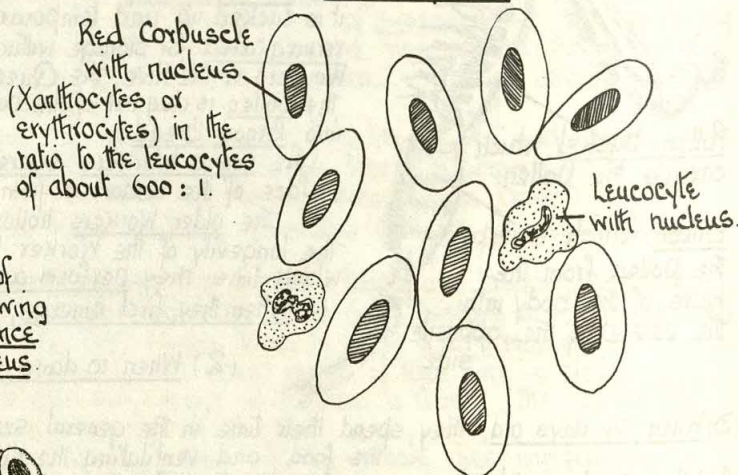 Red Corpuscle
with nucleus.
(Xanthocytes or
erythrocytes) in the
ratio to the leucocytes
of about 600 : 1.
Leucocyte
with nucleus.
of
wing
nce
eus